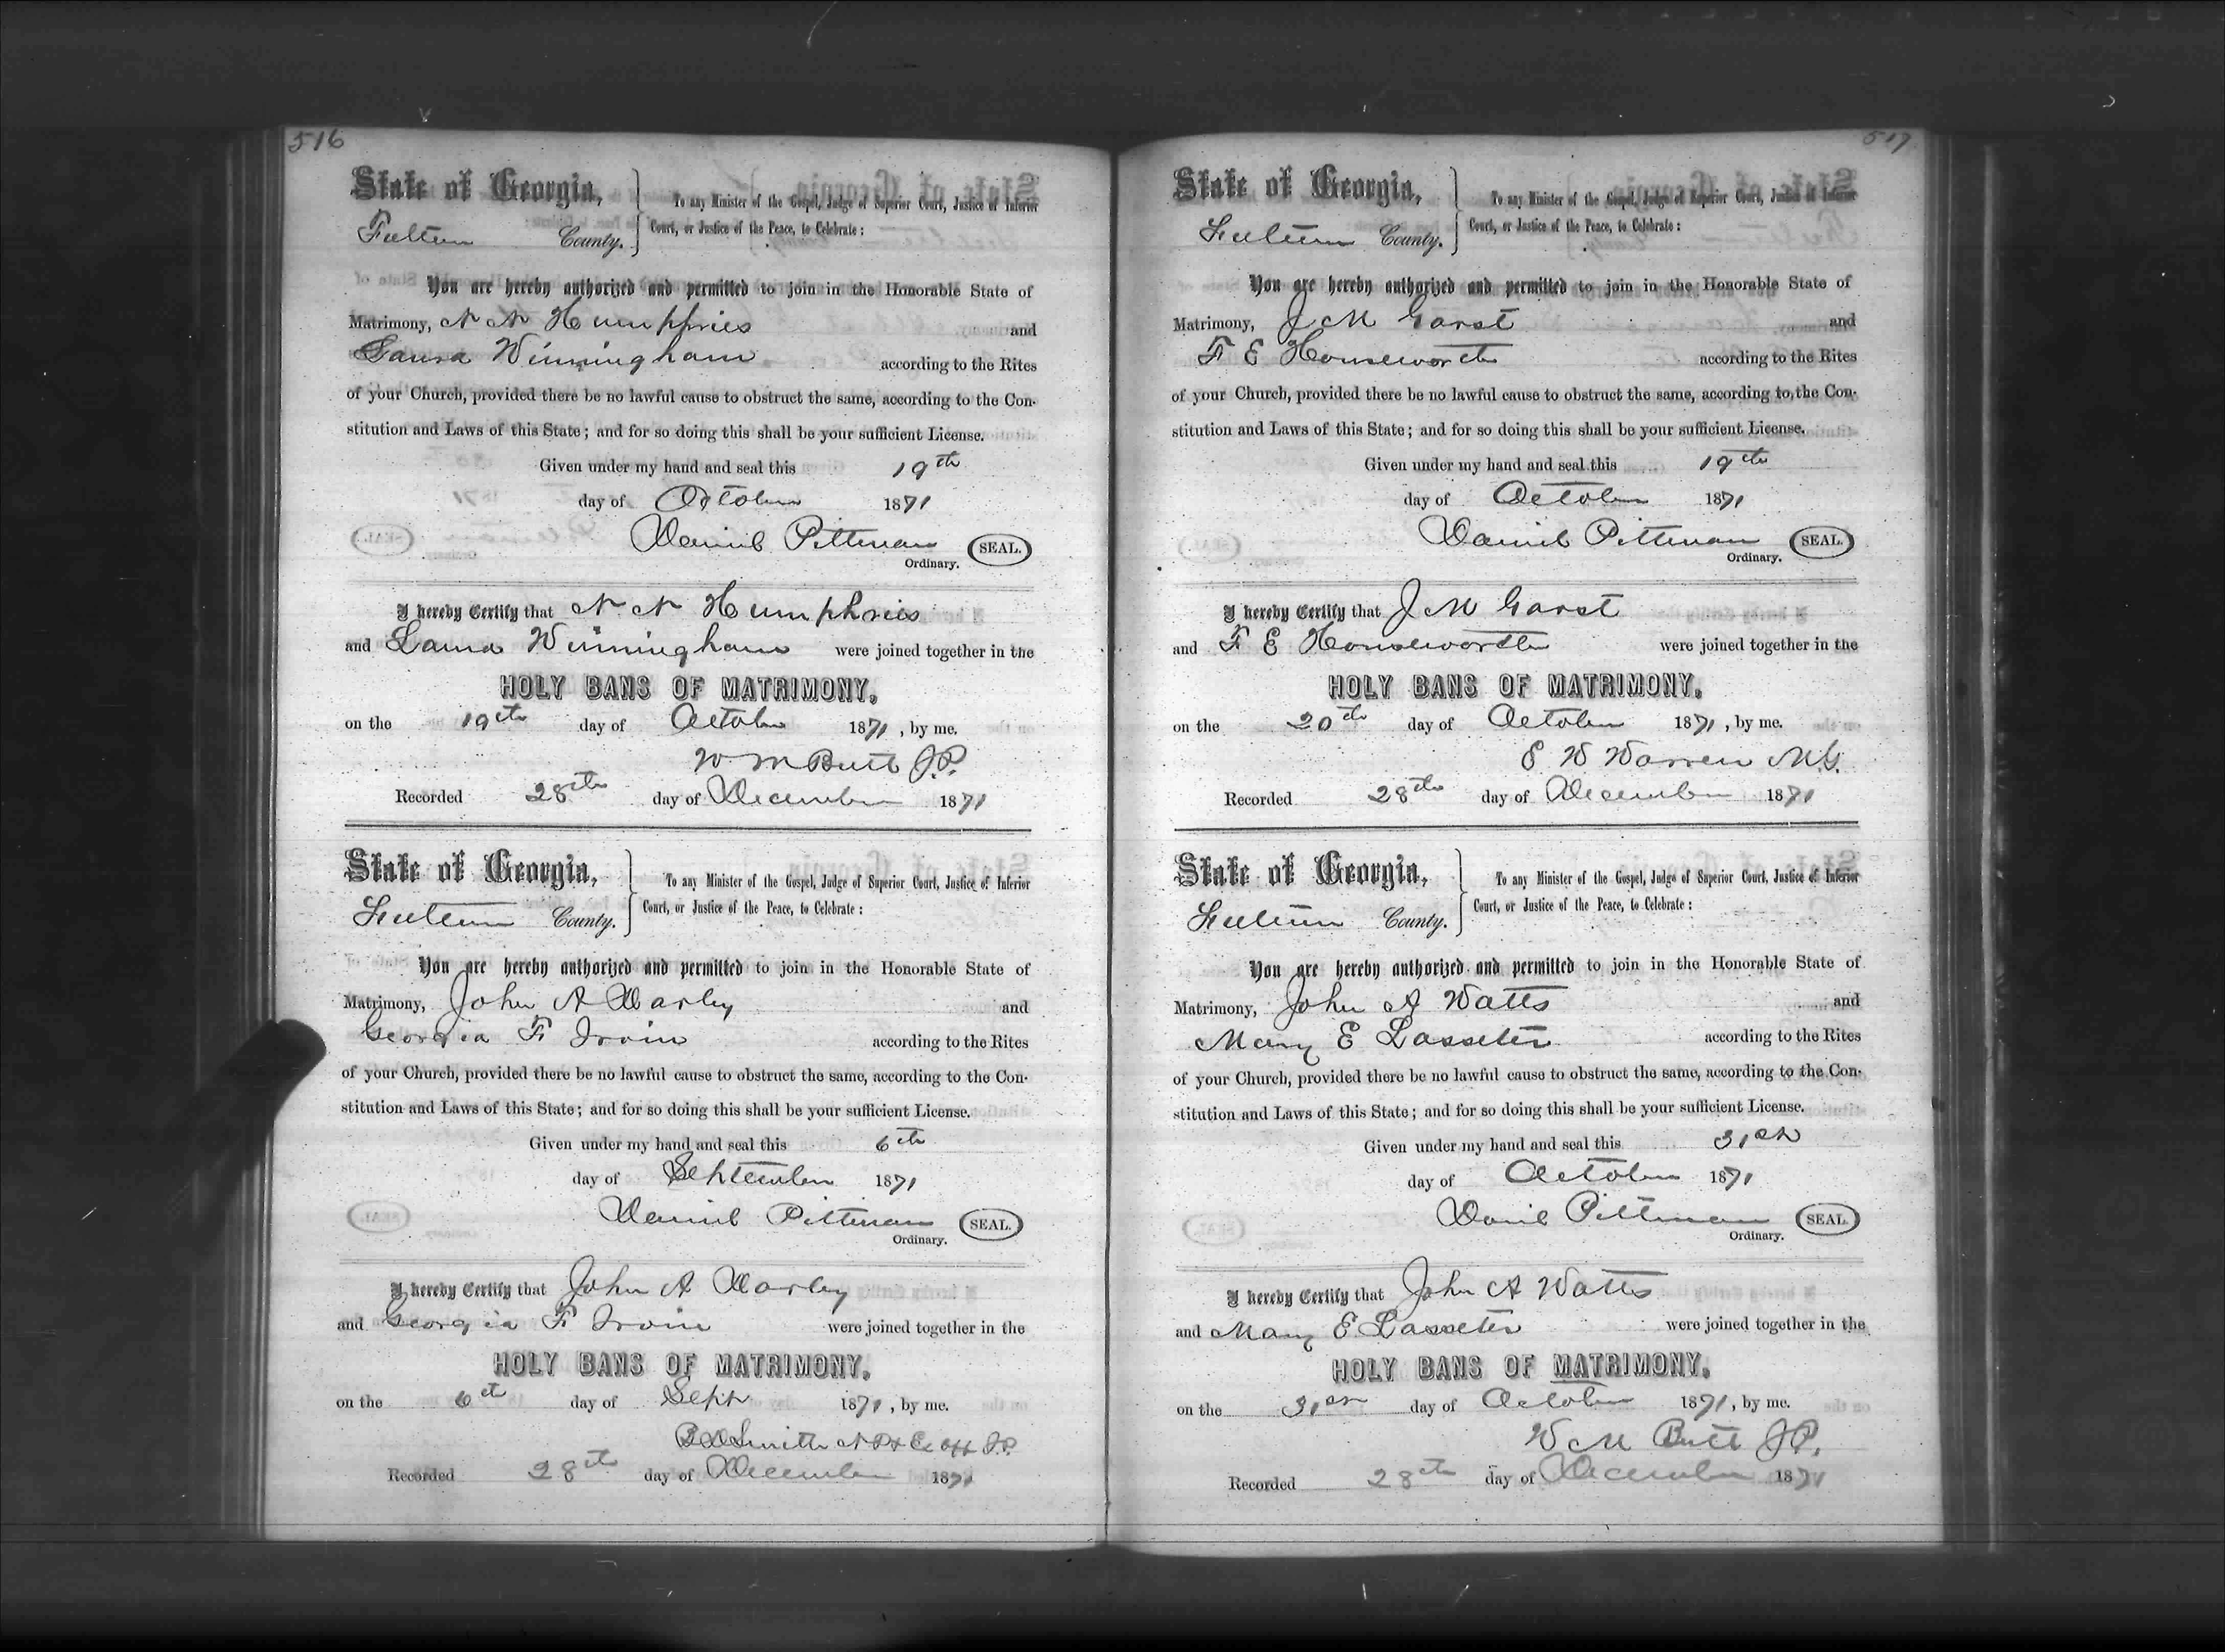 516
State of Georgia,
To any Minister of the Gospel, Judge of Superior Court, Justice of Inferior
Fulton County.
Court, or Justice of the Peace, to Celebrate:
You are hereby authorized and permitted to join in the Honorable State of
Matrimony, N N Humphries and
Laura Winningham according to the Rites
of your Church, provided there be no lawful cause to obstruct the same, according to the Con-
stitution and Laws of this State; and for so doing this shall be your sufficient License.
Given under my hand and seal this 19th
day of October 1871
Daniel Pittman SEAL.
Ordinary.
I hereby Certify that N. N Humphries
and Laura Winningham were joined together in the
HOLY BANS OF MATRIMONY,
on the 19th day of October 1871, by me.
W M Butt J.P.
Recorded 28th day of December 1871
State of Georgia,
To any Minister of the Gospel, Judge of Superior Court, Justice of Inferior
Fulton County.
Court, or Justice of the Peace, to Celebrate:
You are hereby authorized and permitted to join in the Honorable State of
Matrimony, John A Darley and
Georgia F Irvin according to the Rites
of your Church, provided there be no lawful cause to obstruct the same, according to the Con-
stitution and Laws of this State; and for so doing this shall be your sufficient License.
Given under my hand and seal this 6th
day of September 1871
Daniel Pittman SEAL.
Ordinary.
I hereby Certify that John A Darley
and Georgia F Irvin were joined together in the
HOLY BANS OF MATRIMONY,
on the 6th day of Sept 1871, by me.
Smith N P & Ex off J.P.
Recorded 28th day of December 1871
517
State of Georgia,
To any Minister of the Gospel, Judge of Superior Court, Justice of Inferior
Fulton County.
Court, or Justice of the Peace, to Celebrate:
You are hereby authorized and permitted to join in the Honorable State of
Matrimony, J M Garst and
F E Houseworth according to the Rites
of your Church, provided there be no lawful cause to obstruct the same, according to the Con-
stitution and Laws of this State; and for so doing this shall be your sufficient License.
Given under my hand and seal this 19th
day of October 1871
Daniel Pittman SEAL.
Ordinary.
I hereby Certify that J M Garst
and F E Houseworth were joined together in the
HOLY BANS OF MATRIMONY,
on the 20th day of October 1871, by me.
E W Warren M.G.
Recorded 28th day of December 1871
State of Georgia,
To any Minister of the Gospel, Judge of Superior Court, Justice of Inferior
Fulton County.
Court, or Justice of the Peace, to Celebrate:
You are hereby authorized and permitted to join in the Honorable State of
Matrimony, John A Watts and
Mary E Lasseter according to the Rites
of your Church, provided there be no lawful cause to obstruct the same, according to the Con-
stitution and Laws of this State; and for so doing this shall be your sufficient License.
Given under my hand and seal this 31st
day of October 1871
Daniel Pittman SEAL.
Ordinary.
I hereby Certify that John A Watts
and Mary E Lasseter were joined together in the
HOLY BANS OF MATRIMONY,
on the 31st day of October 1871, by me.
W M Butt J.P.
Recorded 28th day of December 1871